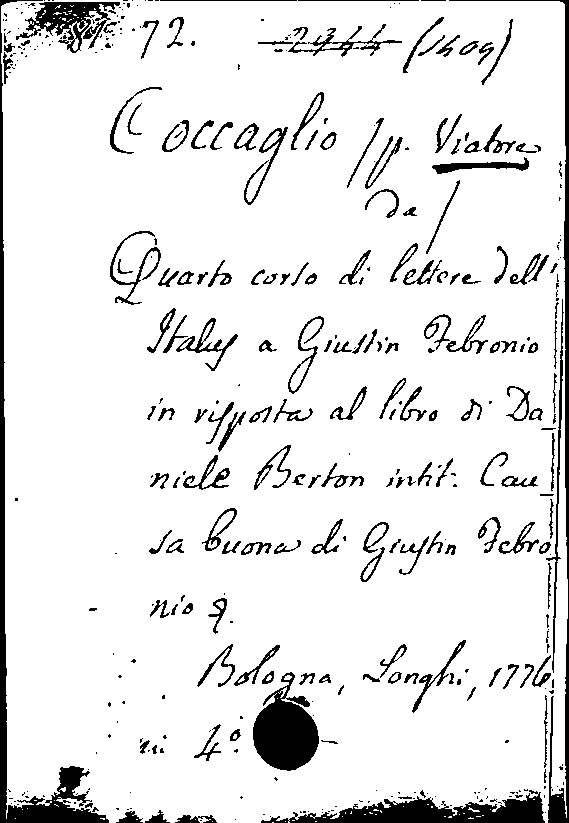 81. 72. 2944 (1409)
Coccaglio /p. Viatore
da/
Quarto corso di lettere dell'
Italus a Giustin Febronio
in risposta al libro di Da
niele Berton intit. Cau
sa buona di Giustin Febro
nio
Bologna, Longhi, 1776
in 4º.